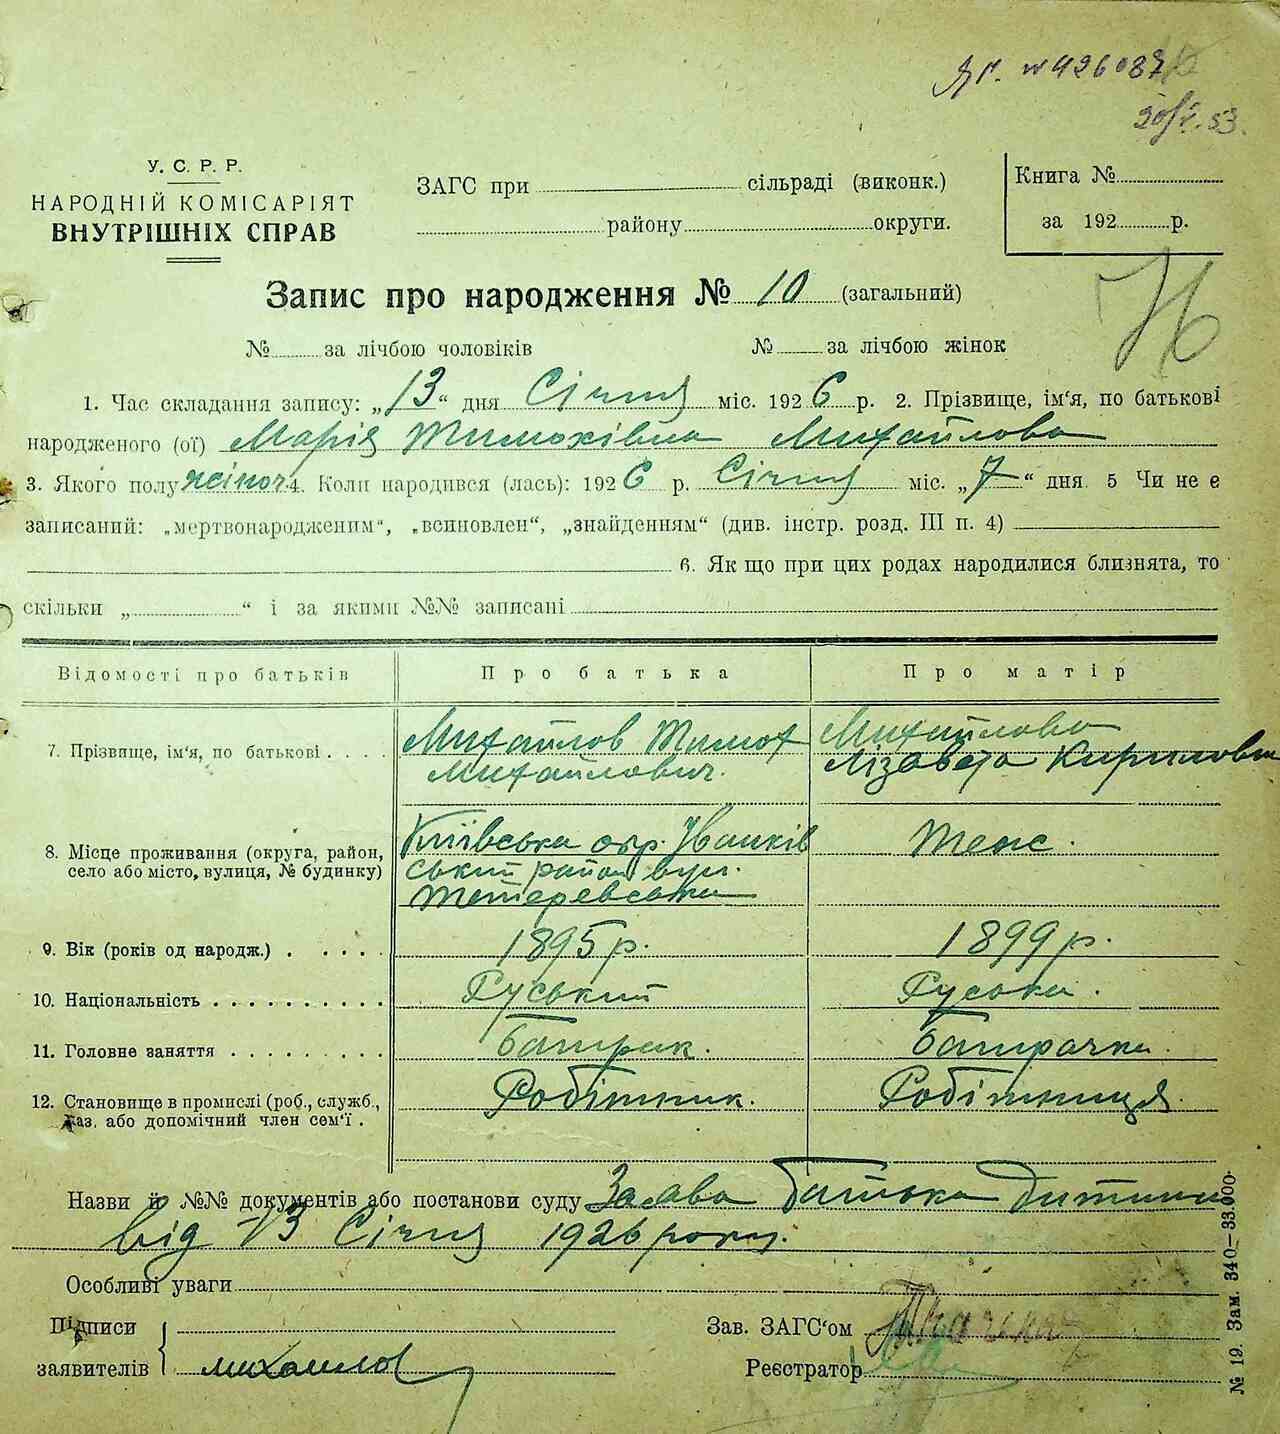 Яг. №426087
20/I. 53.
У. С. Р. Р.
НАРОДНІЙ КОМІСАРІЯТ
ВНУТРІШНІХ СПРАВ
ЗАГС при сільраді (виконк.)
району округи.
Книга №
за 192 р.
Запис про народження № 10 (загальний)
№ за лічбою чоловіків № за лічбою жінок
1. Час складання запису: „13“ дня Січня міс. 1926 р. 2. Прізвище, ім'я, по батькові
народженого (ої) Марія Тимохівна Михайлова
3. Якого полу жіноч. 4. Коли народився (лась): 1926 р. Січня міс. „7“ дня. 5 Чи не є
записаний: „мертвонародженим“, „всиновлен“, „знайденням“ (див. інстр. розд. III п. 4)
6. Як що при цих родах народилися близнята, то
скільки „ “ і за якими №№ записані
Відомості про батьків Про батька Про матір
7. Прізвище, ім'я, по батькові . . . . Михайлов Тимох Михайлова
Михайлович. Лізавета Кириловна
8. Місце проживання (округа, район, село або місто, вулиця, № будинку) Київська окр. Іванків Теж.
ський район вул.
Тетеревська
9. Вік (років од народж.) . . . . . 1895 р. 1899 р.
10. Національність . . . . . . . . . . Руський Руська.
11. Головне заняття . . . . . . . . . Батрак. Батрачка.
12. Становище в промислі (роб., служб., Робітник. Робітниця.
хаз. або допомічний член сем'ї .
Назви й №№ документів або постанови суду Заява батька дитини
від 13 Січня 1926 року.
Особливі уваги
Підписи
заявителів михаилов
Зав. ЗАГС'ом
Реєстратор
№ 19. Зам. 340—33.000